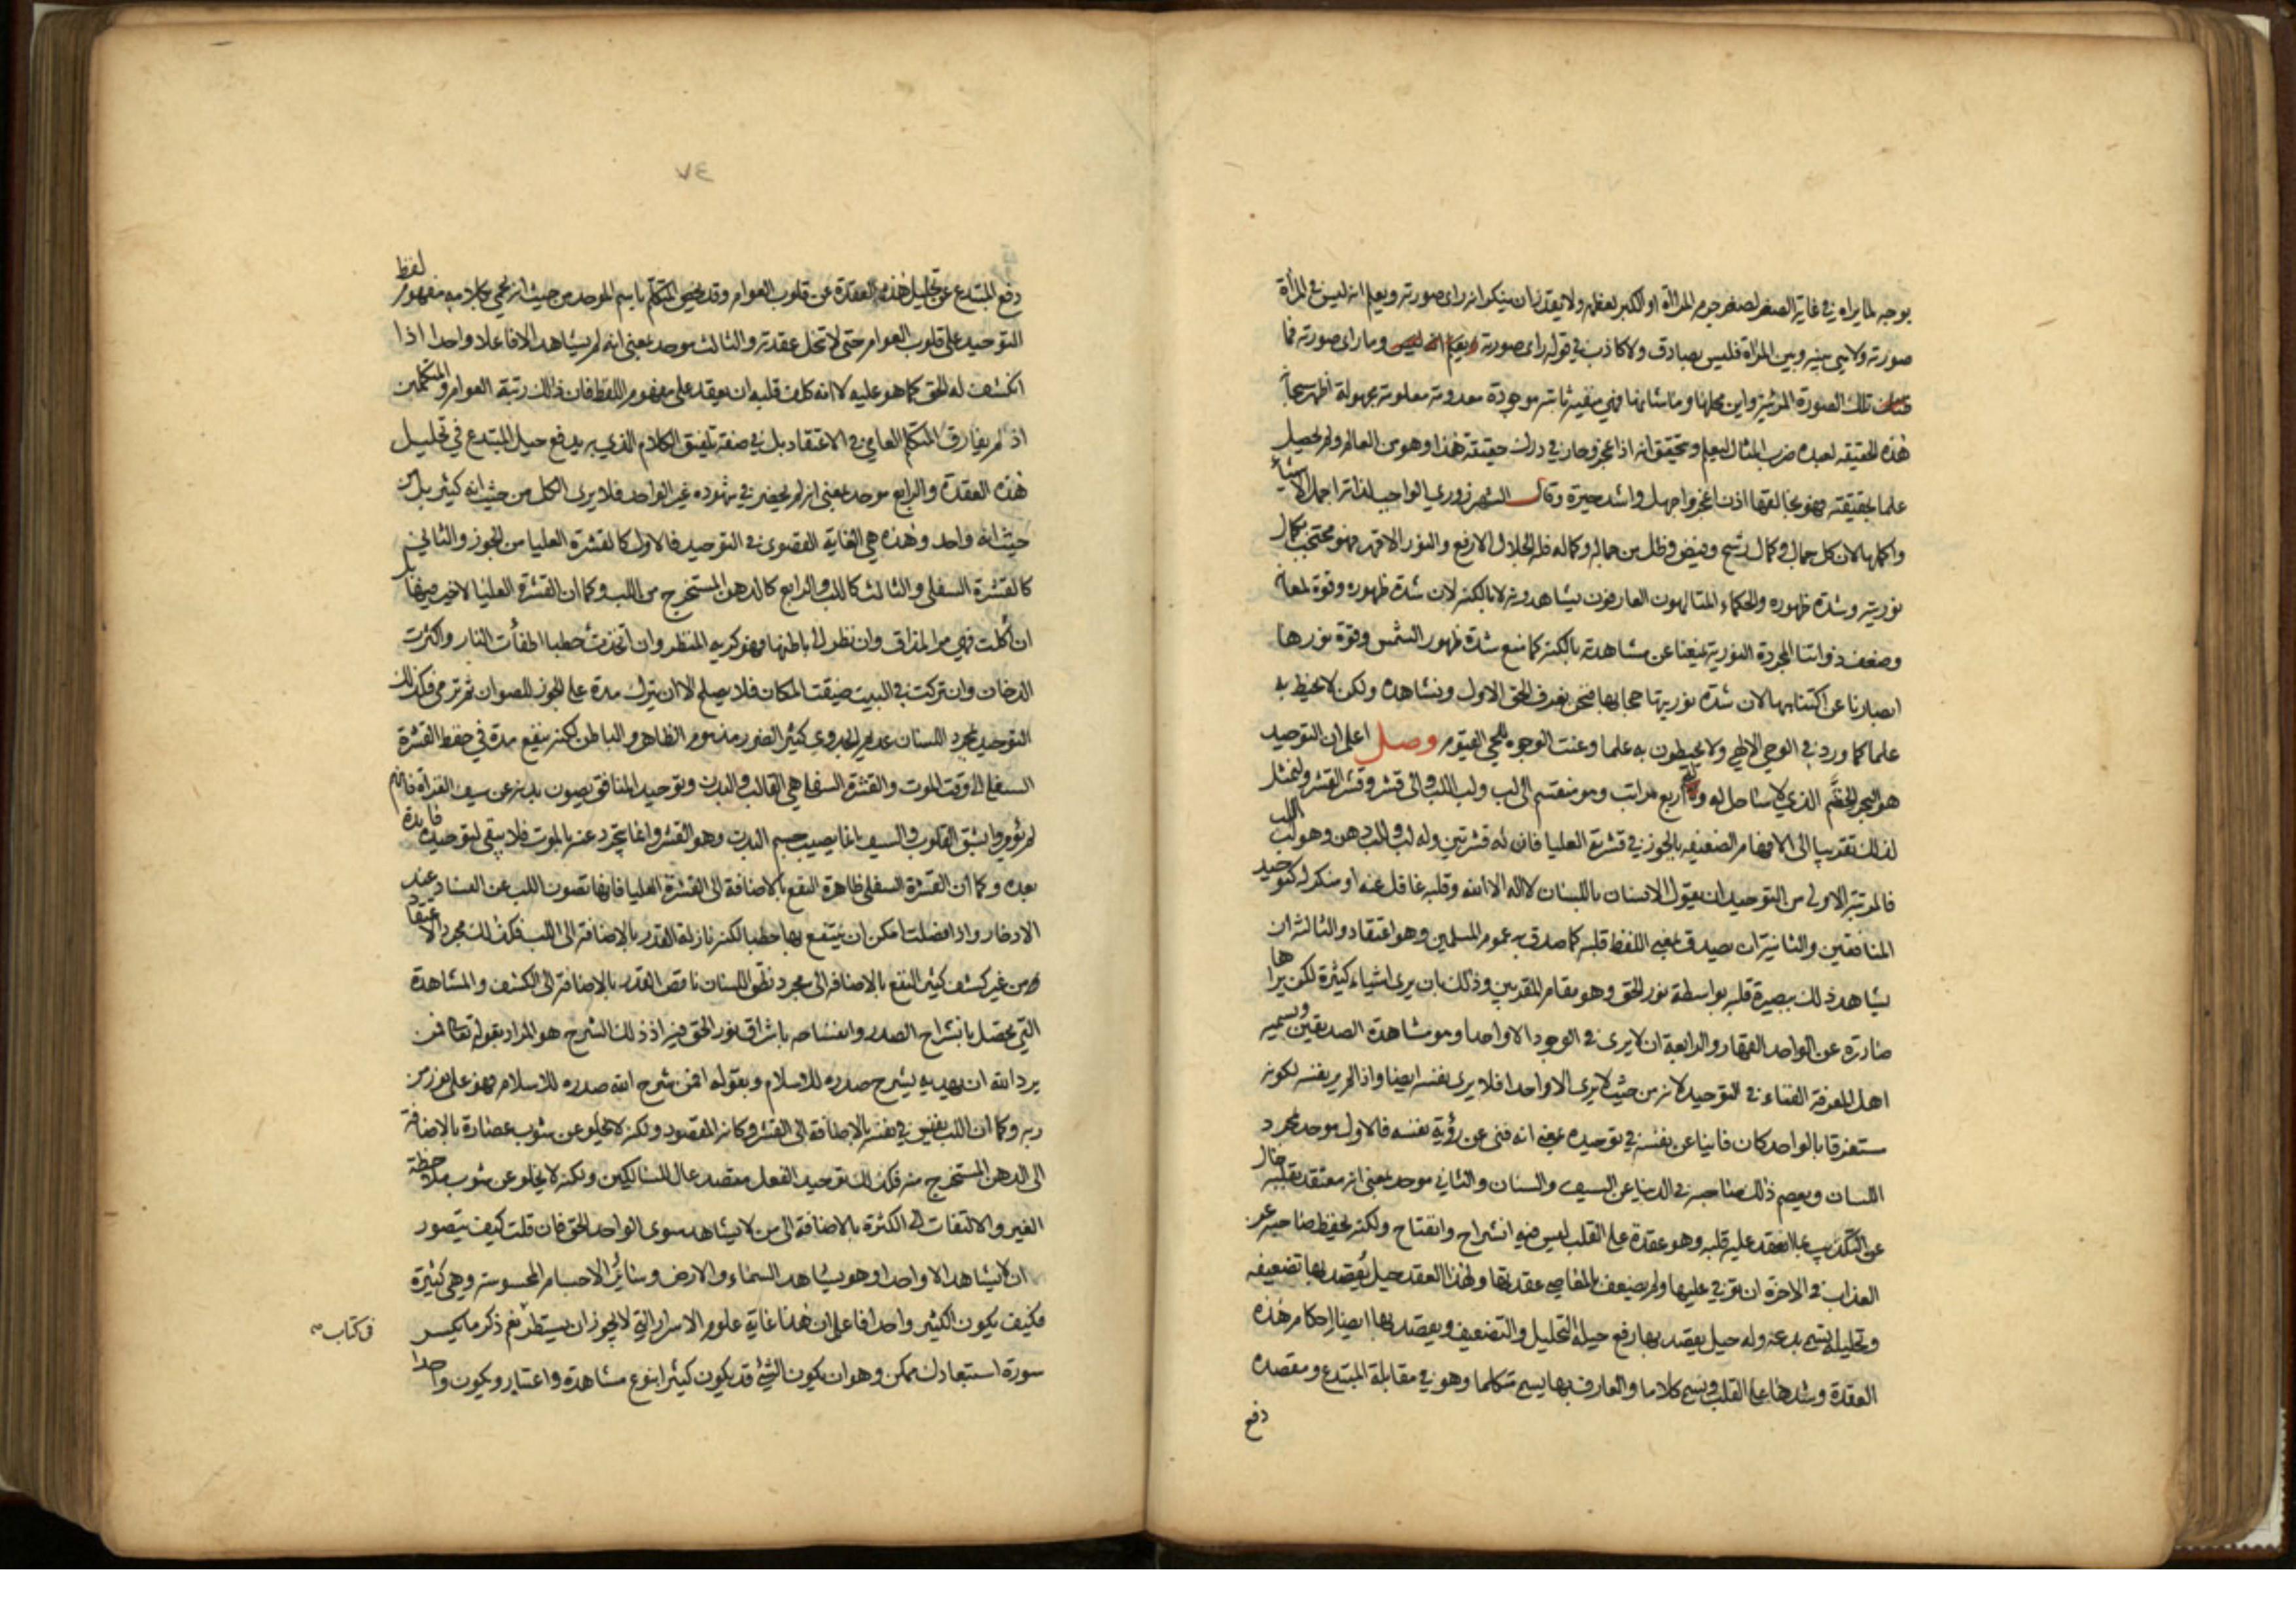 بوجه لما يراه في غاية الصغر لصغر جرم المرآة او الكبر لعظمه ولا يقدر ان ينكر انه راى صورته ويعلم انه ليس في المرآة
صورته ولا هي بينه وبين المرآة فليس بصادق ولا كاذب في قوله راى صورته وما راى صورته فما
تلك الصورة المرئية واين محلها وما شانها فهي منفية ثابتة موجودة معدومة معلومة مجهولة اظهر سبحانه
هذه الحقيقة لعبده ضرب المثال ليعلم ويتحقق انه اذا عجز وحار في درك حقيقة هذا وهو من العالم ولم يحصل
علما بحقيقته فهو بخالقها اذن اعجز واجهل واشد حيرة وقال الشهرزوري الواجب لذاته اجمل الاشياء
واكملها لان كل جمال وكمال رشح وفيض وظل من جماله وكماله فله الجلال الارفع والنور الاقهر فهو محتجب بكمال
نوريته وشدة ظهوره والحكماء المتالهون العارفون يشاهدونه لا بالكنه لان شدة ظهوره وقوة لمعانه
وضعف ذواتنا المجردة النورية يمنعنا عن مشاهدته بالكنه كما منع شدة ظهور الشمس وقوة نورها
ابصارنا عن اكتناهها لان شدة نوريتها حجابها فنحن نعرف الحق الاول ونشاهده ولكن لا نحيط به
علما كما ورد في الوحي الالهي ولا يحيطون به علما وعنت الوجوه للحي القيوم وصل اعلم ان التوحيد
هو البحر الخضم الذي لا ساحل له وله اربع مراتب وهو منقسم الى لب ولب اللب والى قشر وقشر القشر ولنمثل
لذلك تقريبا الى الافهام الضعيفة بالجوز في قشرته العليا فان له قشرتين وله لب وللب دهن وهو لب اللب
فالمرتبة الاولى من التوحيد ان يقول الانسان باللسان لا اله الا الله وقلبه غافل عنه او منكر له كتوحيد
المنافقين والثانية ان يصدق بمعنى اللفظ قلبه كما صدق به عموم المسلمين وهو اعتقاد والثالثة ان
يشاهد ذلك ببصيرة قلبه بواسطة نور الحق وهو مقام المقربين وذلك بان يرى اشياء كثيرة لكن يراها
صادرة عن الواحد القهار والرابعة ان لا يرى في الوجود الا واحدا وهو مشاهدة الصديقين ويسميه
اهل المعرفة الفناء في التوحيد لانه من حيث لا يرى الا واحدا فلا يرى نفسه ايضا واذا لم ير نفسه لكونه
مستغرقا بالواحد كان فانيا عن نفسه في توحيده بمعنى انه فنى عن رؤية نفسه فالاول موحد بمجرد
اللسان ويعصم ذلك صاحبه في الدنيا عن السيف والسنان والثاني موحد بمعنى انه معتقد بقلبه خال
عن التكذيب بما انعقد عليه قلبه وهو عقدة على القلب ليس فيه انشراح وانفتاح ولكنه يحفظ صاحبه عن
العذاب في الاخرة ان توفي عليها ولم يضعف بالمعاصي عقدتها ولهذا العقد حيل يقصد بها تضعيفه
وتحليله يسمى بدعة وله حيل يقصد بها رفع حيلة التحليل والتضعيف ويقصد بها ايضا احكام هذه
العقدة وشدها على القلب ويسمى كلاما والعارف بها يسمى متكلما وهو في مقابلة المبتدع ومقصده
دفع
٧٤
دفع المبتدع عن تحليل هذه العقدة عن قلوب العوام وقد يخص المتكلم باسم الموحد من حيث انه يحمي بكلامه مفهوم لفظ
التوحيد على قلوب العوام حتى لا تنحل عقدته والثالث موحد بمعنى انه لم يشاهد الا فاعلا واحدا اذا
انكشف له الحق كما هو عليه لا انه كلف قلبه ان يعقد على مفهوم اللفظ فان ذلك رتبة العوام والمتكلمين
اذ لم يفارق المتكلم العامي في الاعتقاد بل في صنعة تلفيق الكلام الذي به يدفع حيل المبتدع في تحليل
هذه العقدة والرابع موحد بمعنى انه لم يحضر في شهوده غير الواحد فلا يرى الكل من حيث انه كثير بل من
حيث انه واحد وهذه هي الغاية القصوى في التوحيد فالاول كالقشرة العليا من الجوز والثاني
كالقشرة السفلى والثالث كاللب والرابع كالدهن المستخرج من اللب وكما ان القشرة العليا لا خير فيها بل
ان اكلت فهي مر المذاق وان نظر الى باطنها فهو كريه المنظر وان اتخذت حطبا اطفأت النار واكثرت
الدخان وان تركت في البيت ضيقت المكان فلا يصلح الا ان يترك مدة على الجوز للصوان ثم ترمى فكذلك
التوحيد بمجرد اللسان عديم الجدوى كثير الضرر مذموم الظاهر والباطن لكنه ينفع مدة في حفظ القشرة
السفلى الى وقت الموت والقشرة السفلى هي القالب والبدن وتوحيد المنافق يصون بدنه عن سيف الغزاة فانهم
لم يؤمروا بشق القلوب والسيف انما يصيب جسم البدن وهو القشر وانما يتجرد عنه بالموت فلا يبقى لتوحيده فايدة
بعده وكما ان القشرة السفلى ظاهرة النفع بالاضافة الى القشرة العليا فانها تصون اللب عن الفساد عند
الادخار واذا فصلت امكن ان ينتفع بها حطبا لكنه نازلة القدر بالاضافة الى اللب فكذلك مجرد الاعتقاد
من غير كشف كثير النفع بالاضافة الى مجرد نطق اللسان ناقص القدر بالاضافة الى الكشف والمشاهدة
التي تحصل بانشراح الصدر وانفساحه باشراق نور الحق فيه اذ ذلك الشرح هو المراد بقوله تعالى فمن
يرد الله ان يهديه يشرح صدره للاسلام وبقوله افمن شرح الله صدره للاسلام فهو على نور من
ربه وكما ان اللب نفيس في نفسه بالاضافة الى القشر وكانه المقصود ولكنه لا يخلو عن شوب عصارة بالاضافة
الى الدهن المستخرج منه فكذلك توحيد الفعل مقصد عال للسالكين ولكنه لا يخلو عن شوب ملاحظة
الغير والالتفات الى الكثرة بالاضافة الى من لا يشاهد سوى الواحد الحق فان قلت كيف يتصور
ان لا يشاهد الا واحدا وهو يشاهد السماء والارض وسائر الاجسام المحسوسة وهي كثيرة
فكيف يكون الكثير واحدا فاعلم ان هذا غاية علوم الاسرار التي لا يجوز ان يسطر نعم ذكر ما يكسر
في كتاب
سورة استبعادك ممكن وهو ان يكون الشئ قد يكون كثيرا بنوع مشاهدة واعتبار ويكون واحدا